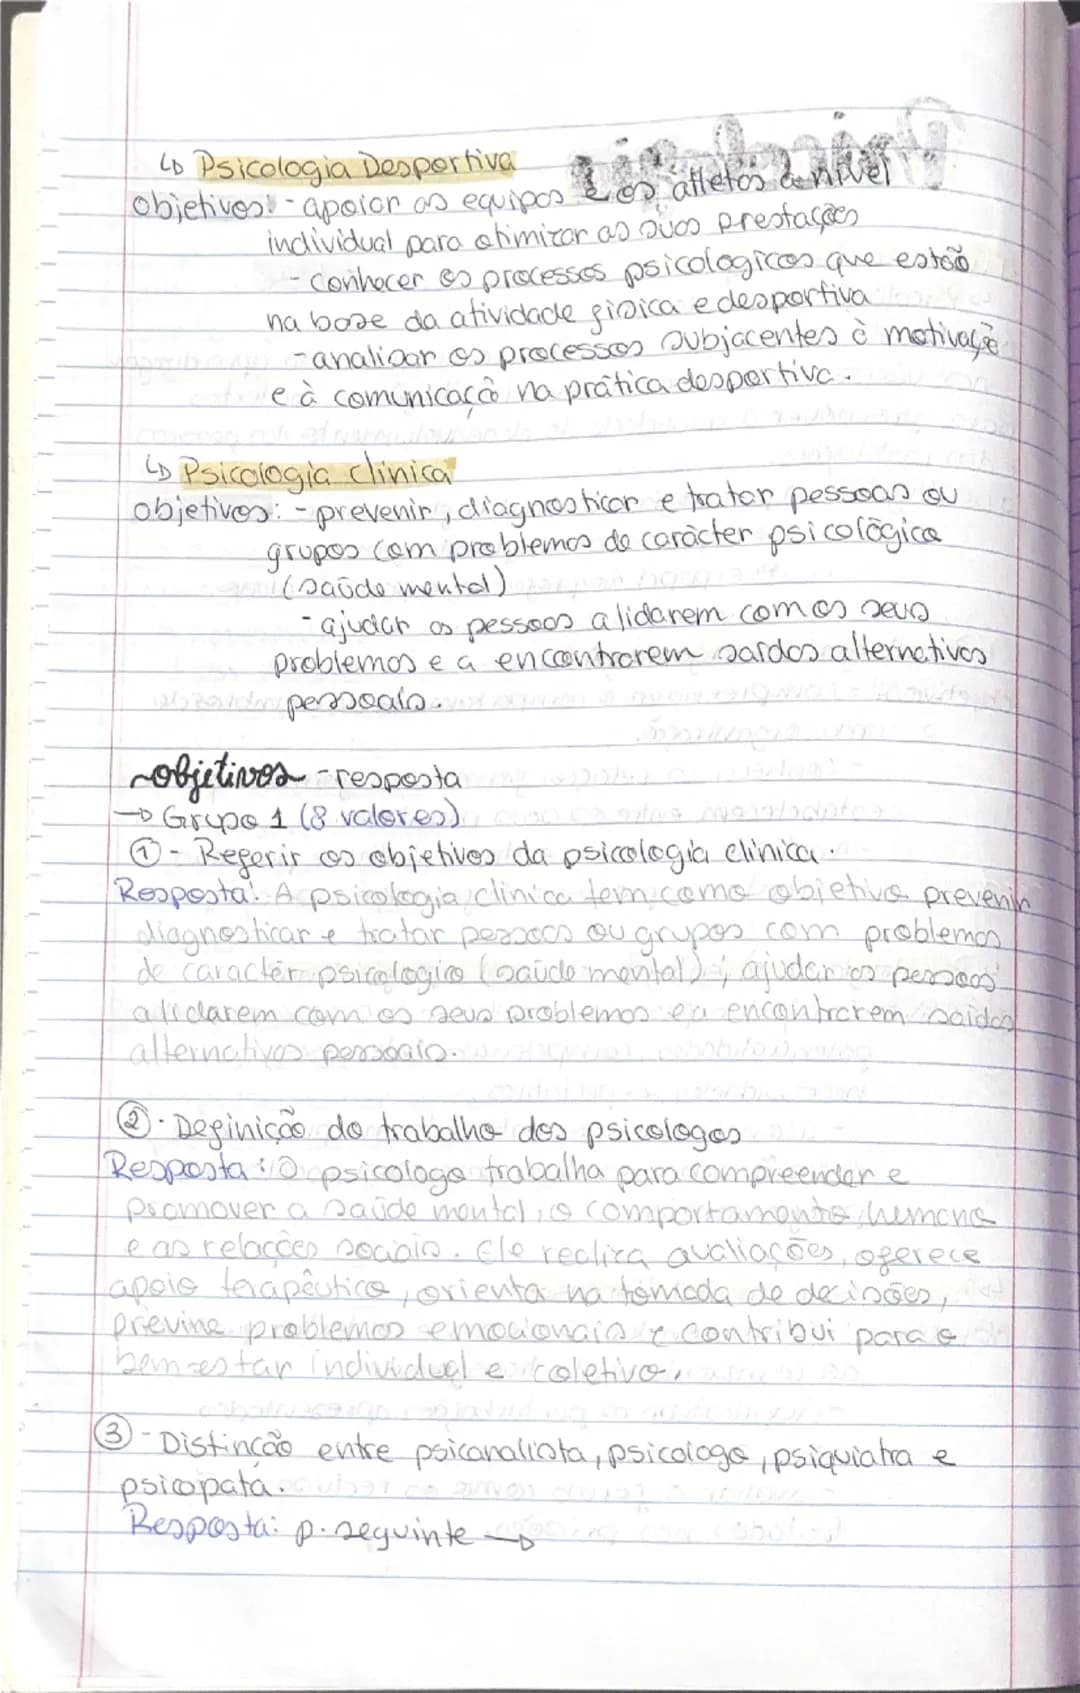 ↳ Psicologia Desportiva
objetivos: - apoiar as equipas e os atletas a nível
individual para otimizar as suas prestações
- conhecer os processos psicologicos que estão
na base da atividade fisica e desportiva
- analisar os processos subjacentes à motivação
e à comunicação na prática desportiva.
↳ Psicologia clinica
objetivos: - prevenir, diagnosticar e tratar pessoas ou
grupos com problemas de carácter psicológico
(saúde mental)
- ajudar as pessoas a lidarem com os seus
problemas e a encontrarem saidas alternativas
pessoais.
~objetivos - resposta
→ Grupo 1 (8 valores)
① - Referir os objetivos da psicologia clinica.
Resposta: A psicologia clinica tem como objetivo prevenir
diagnosticar e tratar pessoas ou grupos com problemas
de caractér psicologico (saúde mental); ajudar as pessoas
a lidarem com os seus problemas e a encontrarem saidas
alternativas pessoais.
② - Definição do trabalho dos psicologos
Resposta: O psicologo trabalha para compreender e
promover a saúde mental, o comportamento humano
e as relações sociais. Ele realiza avaliações, oferece
apoio terapêutico, orienta na tomada de decisões,
previne problemas emocionais e contribui para o
bem-estar individual e coletivo.
③ - Distinção entre psicanalista, psicologo, psiquiatra e
psicopata.
Resposta: p. seguinte →